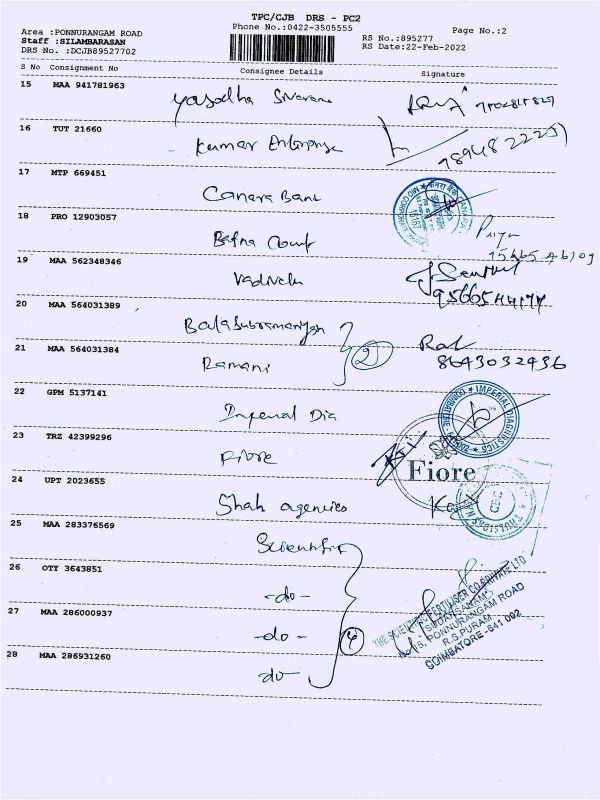 TPC/CJB DRS - PC2
Phone No.:0422-3505555
Page No.:2
Area :PONNURANGAM ROAD
Staff :SILAMBARASAN
DRS No. :DCJB89527702
RS No.:895277
RS Date:22-Feb-2022
S No Consignment No Consignee Details Signature
15 MAA 941781963 Yasodha
16 TUT 21660 Kumar Enterprise
17 MTP 669451 Canara Bank
18 PRO 12903057 Bafna Court Priya
19 MAA 562348346 Vadivelu
20 MAA 564031389 Balasubramaniyan
21 MAA 564031384 Ramani 2 8643032436
22 GPM 5137141 Imperial Dia
IMPERIAL DIAGNOSTICS
23 TRZ 42399296 Fiore
Fiore
24 UPT 2023655 Shah agencies
25 MAA 283376569 Scientific
26 OTY 3643851 -do-
27 MAA 286000937 -do- 4
28 MAA 286931260 -do-
THE SCIENTIFIC FERTILISER CO PRIVATE LTD
PONNURANGAM ROAD
R.S.PURAM
COIMBATORE - 641 002